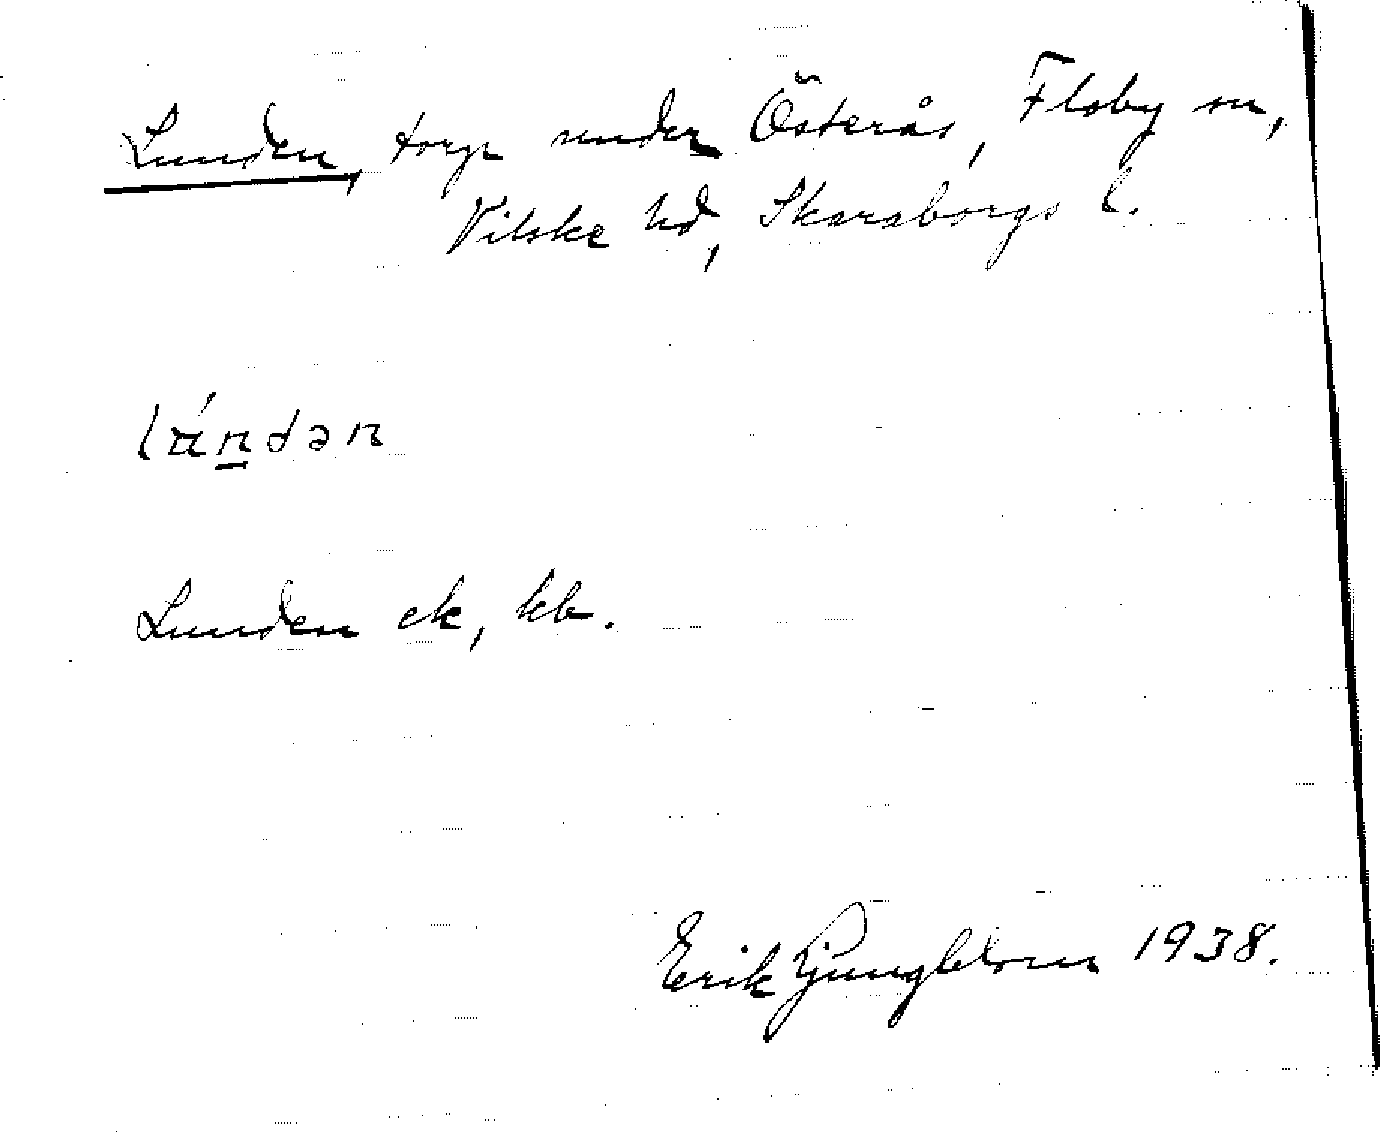 Lunden, torp under Österås, Floby sn,
Vilske hd, Skaraborgs l.
lándən
Lunden ek, kb.
Erik Ljungblom 1938.